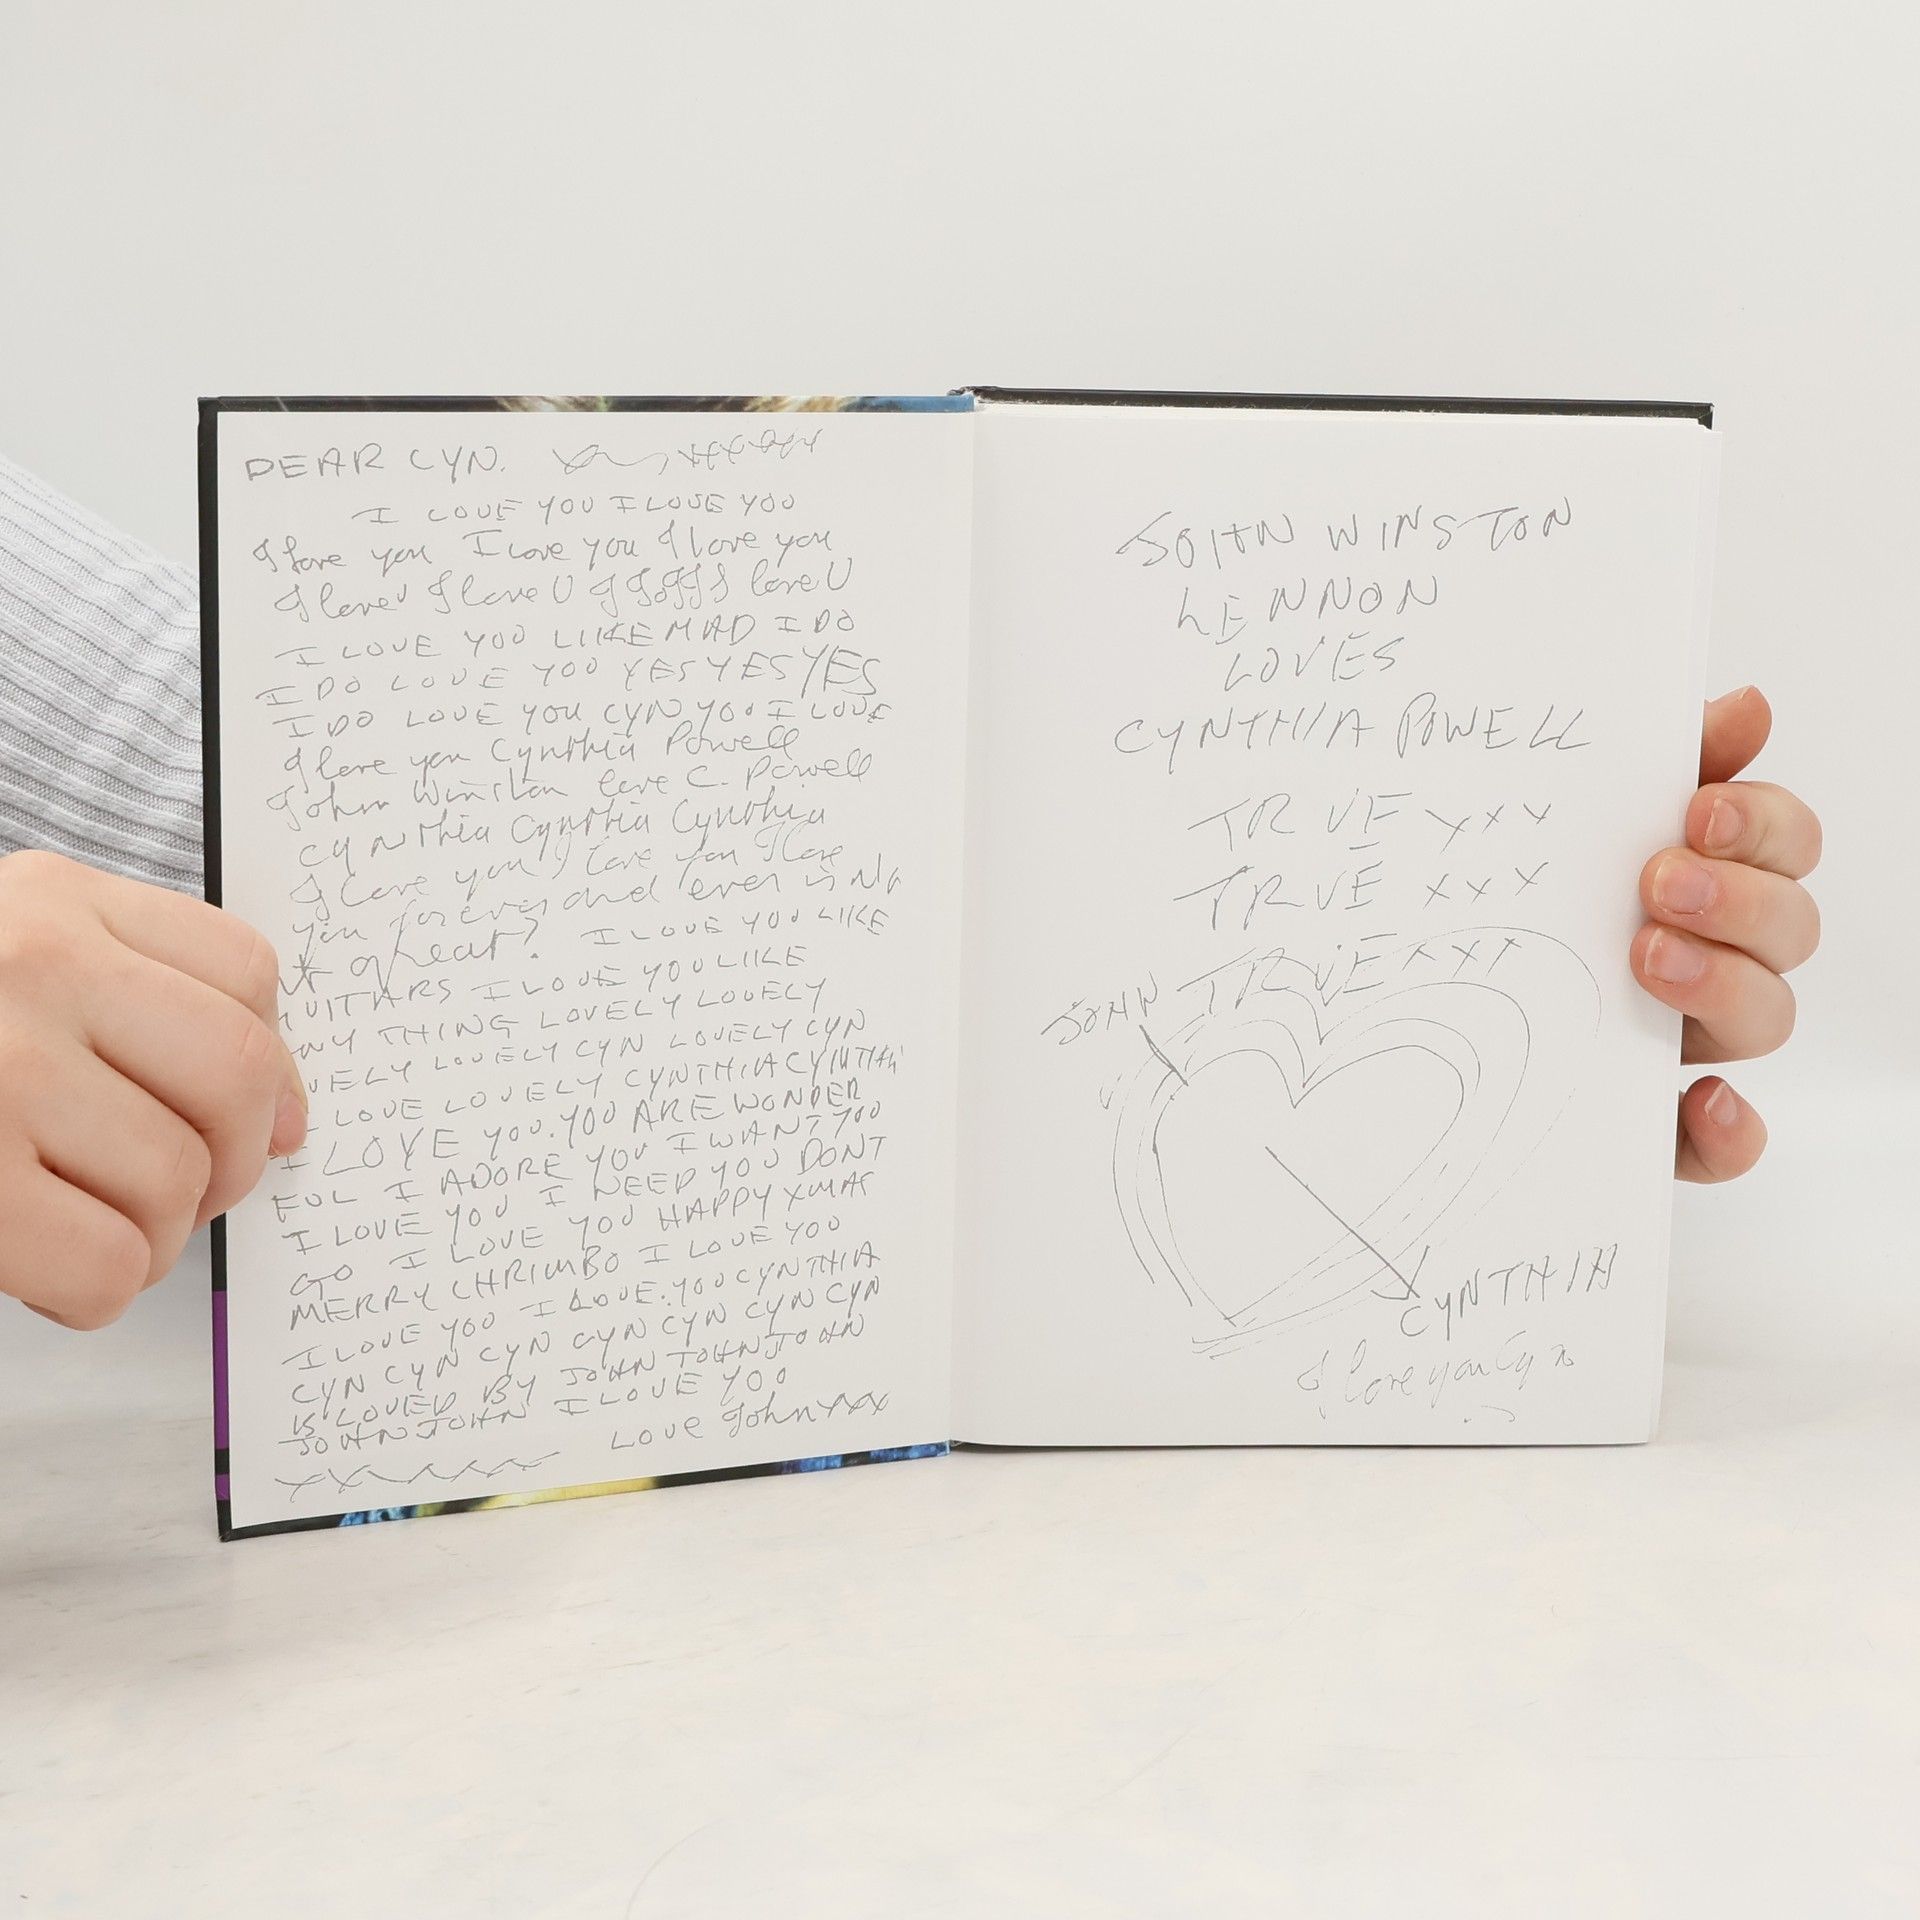 DEAR CYN.
I LOVE YOU I LOVE YOU
I love you I love you I love you
I love U I love U I I I I I I love U
I LOVE YOU LIKE MAD I DO
I DO LOVE YOU YES YES YES
I DO LOVE YOU CYN YOU I LOVE
I love you Cynthia Powell
John Winston love C. Powell
Cynthia Cynthia Cynthia
I love you I love you I love
you forever and ever is
great? I LOVE YOU LIKE
GUITARS I LOVE YOU LIKE
ANY THING LOVELY LOVELY
LOVELY LOVELY CYN LOVELY CYN
I LOVE LOVELY CYNTHIA CYNTHIA
I LOVE YOU. YOU ARE WONDER
FUL I ADORE YOU I WANT YOU
I LOVE YOU I NEED YOU DONT
GO I LOVE YOU HAPPY XMAS
MERRY CHRIMBO I LOVE YOU
I LOVE YOU I LOVE. YOU CYNTHIA
CYN CYN CYN CYN CYN CYN CYN
IS LOVED BY JOHN JOHN JOHN
JOHN JOHN I LOVE YOU
LOVE John xxx
JOHN WINSTON
LENNON
LOVES
CYNTHIA POWELL
TRUE xxx
TRUE xxx
TRUE xxx
JOHN
CYNTHIA
I love you Cyn